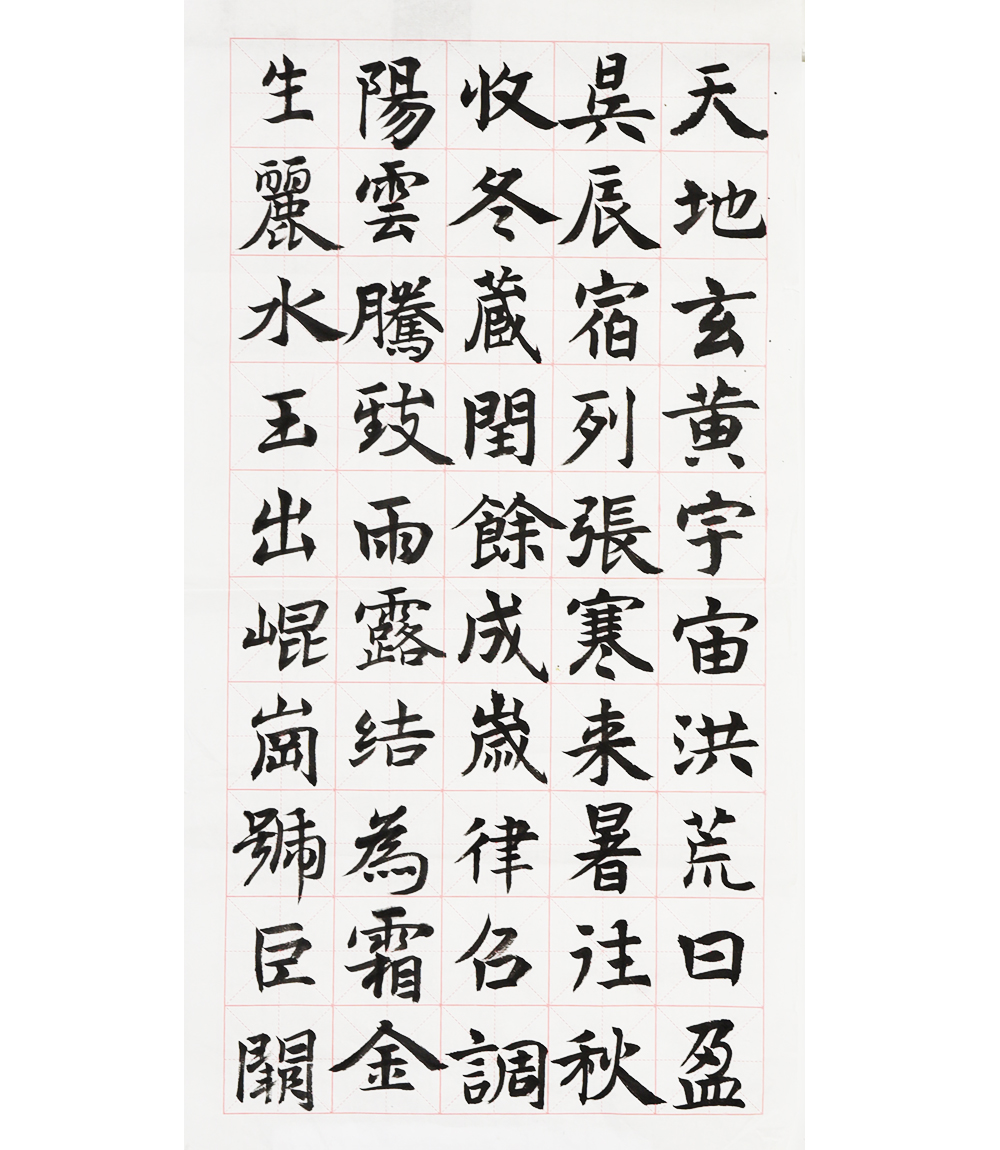 天地玄黄宇宙洪荒日盈
昃辰宿列張寒来暑往秋
收冬蔵閏餘成嵗律召調
陽雲騰致雨露结為霜金
生麗水玉出崐崗號巨闕